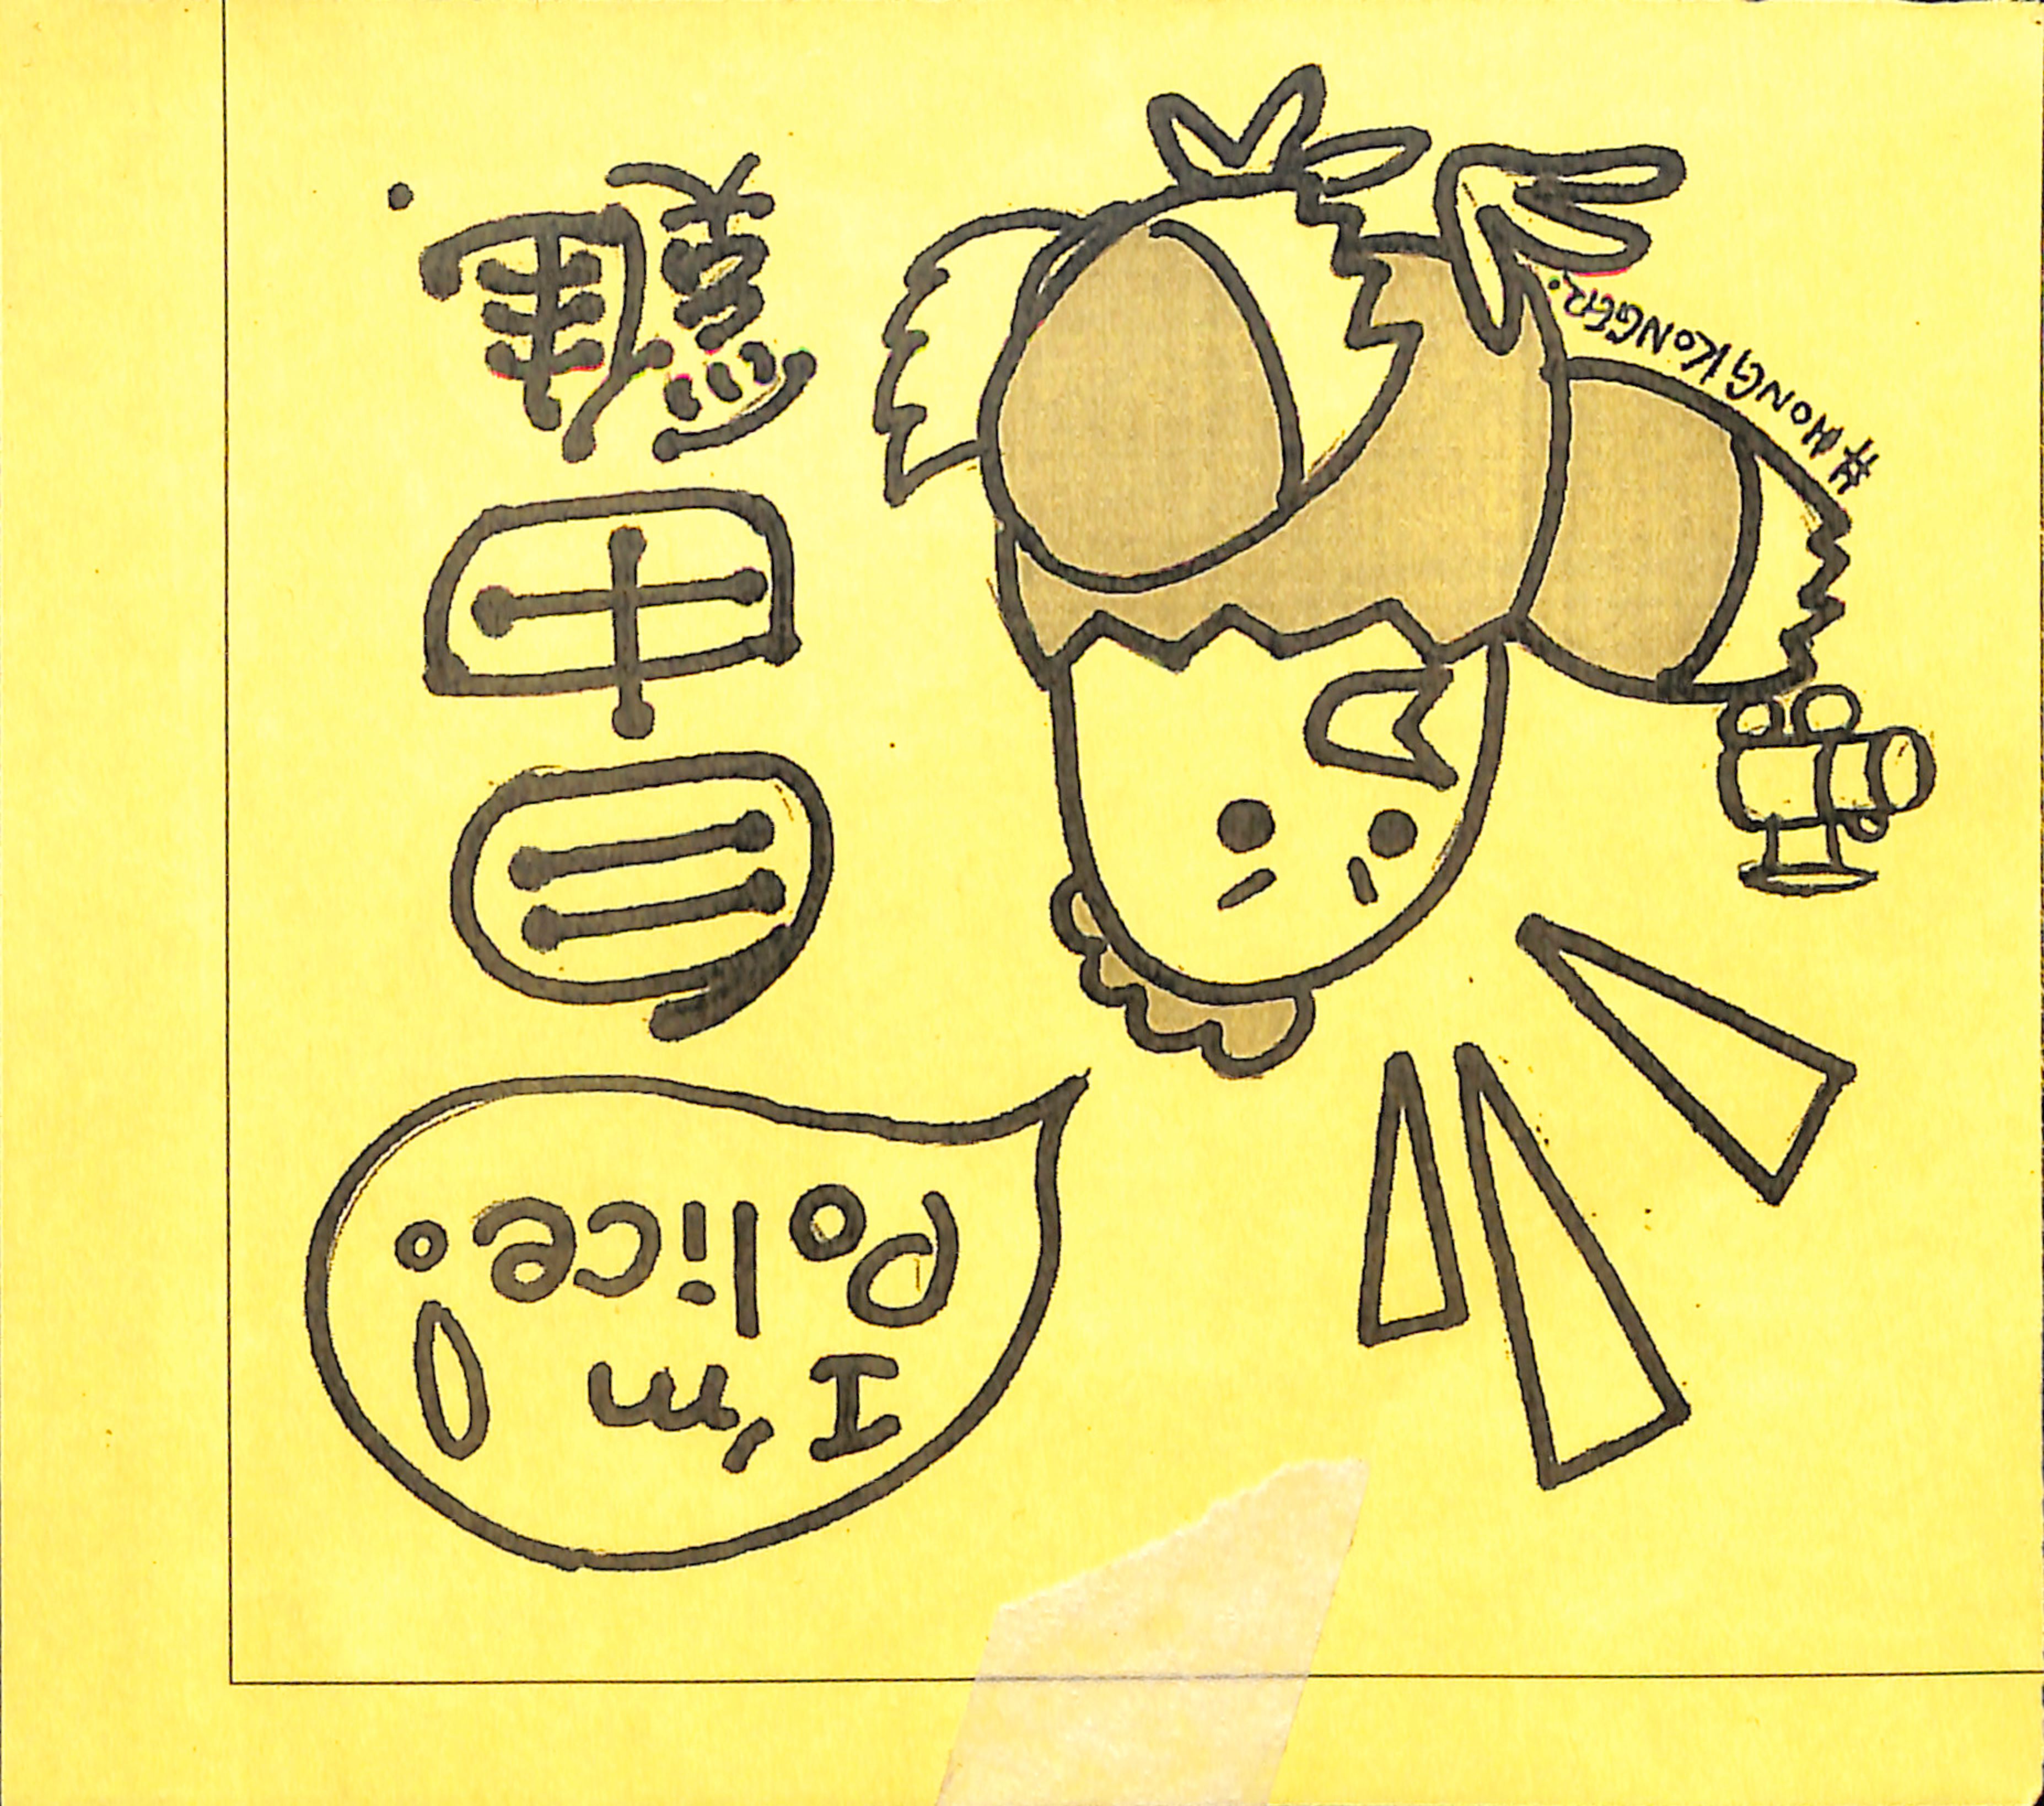 I'm
Police!
自由雞.
#HONGKONGER.